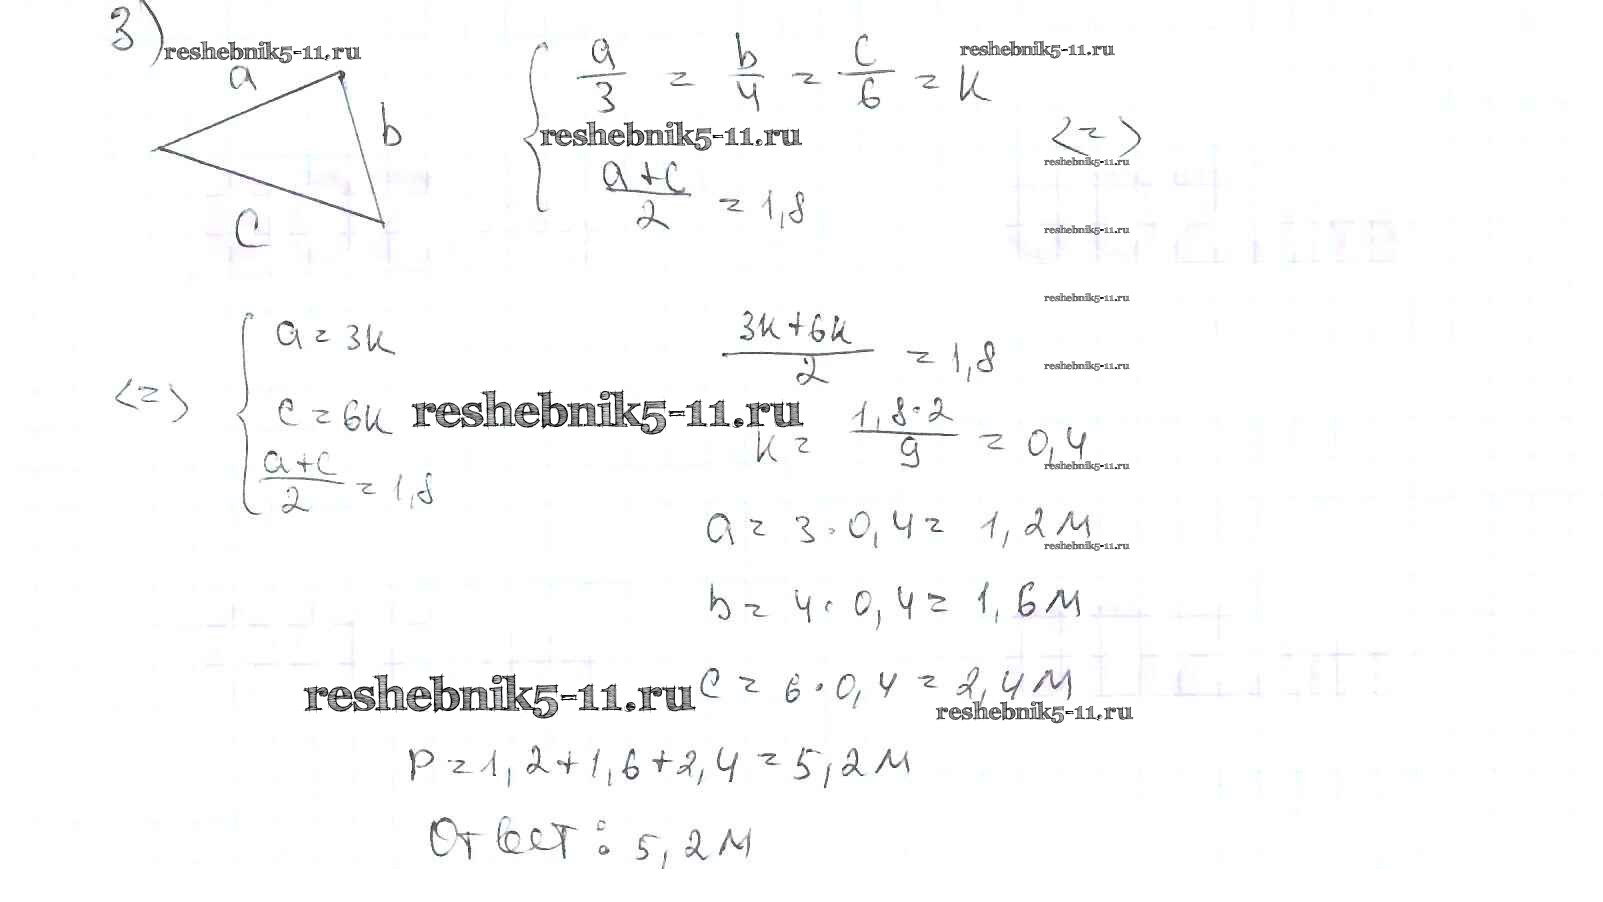 3)
reshebnik5-11.ru
a
b
c
a/3 = b/4 = c/6 = k
reshebnik5-11.ru
reshebnik5-11.ru
(a+c)/2 = 1,8
<=>
reshebnik5-11.ru
reshebnik5-11.ru
reshebnik5-11.ru
<=>
a = 3k
c = 6k
(a+c)/2 = 1,8
reshebnik5-11.ru
(3k+6k)/2 = 1,8
reshebnik5-11.ru
k = (1,8·2)/9 = 0,4
reshebnik5-11.ru
a = 3·0,4 = 1,2м
reshebnik5-11.ru
b = 4·0,4 = 1,6м
reshebnik5-11.ru
c = 6·0,4 = 2,4м
reshebnik5-11.ru
P = 1,2+1,6+2,4 = 5,2м
Ответ: 5,2м